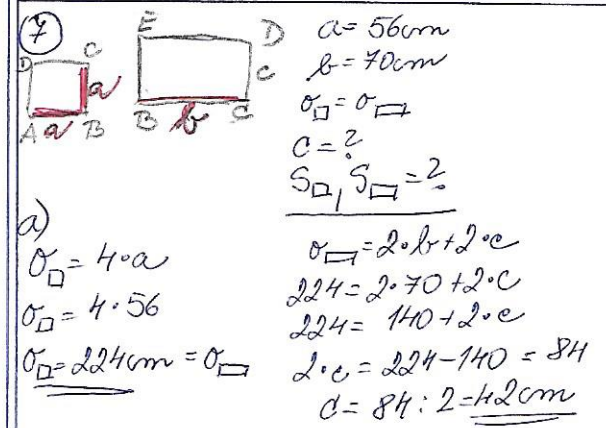 7
D C
a
A a B
E D
c
B b C
a = 56cm
b = 70cm
o□ = o▭
c = ?
S□, S▭ = ?
a)
O□ = 4·a
O□ = 4·56
O□ = 224cm = O▭
o▭ = 2·b+2·c
224 = 2·70+2·c
224 = 140+2·c
2·c = 224-140 = 84
c = 84:2=42cm